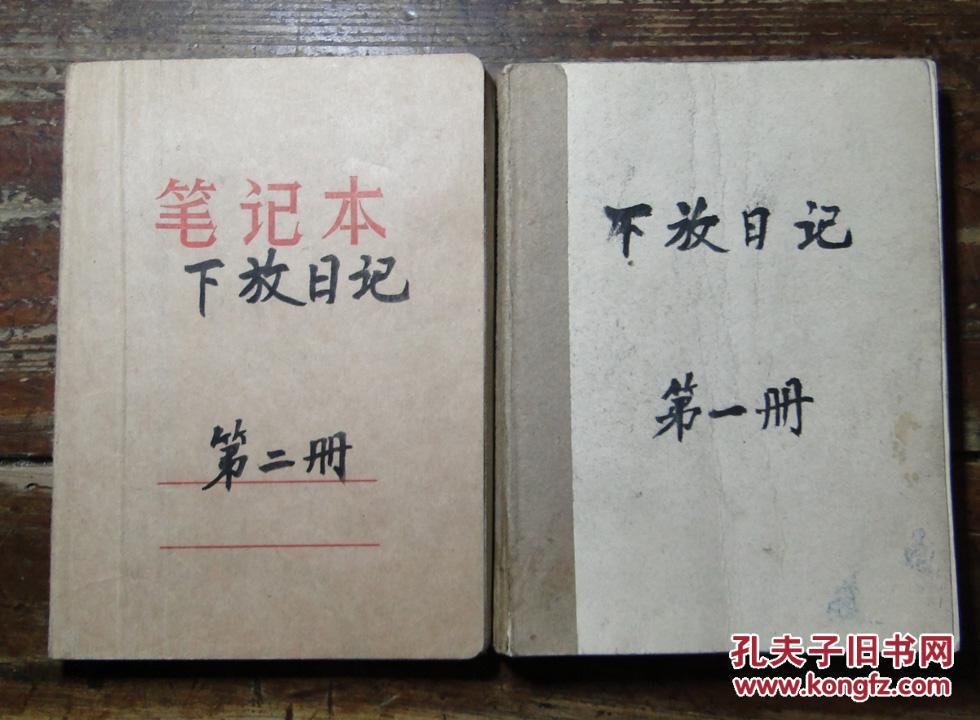 笔记本
下放日记
第二册
下放日记
第一册
孔夫子旧书网
www.kongfz.com